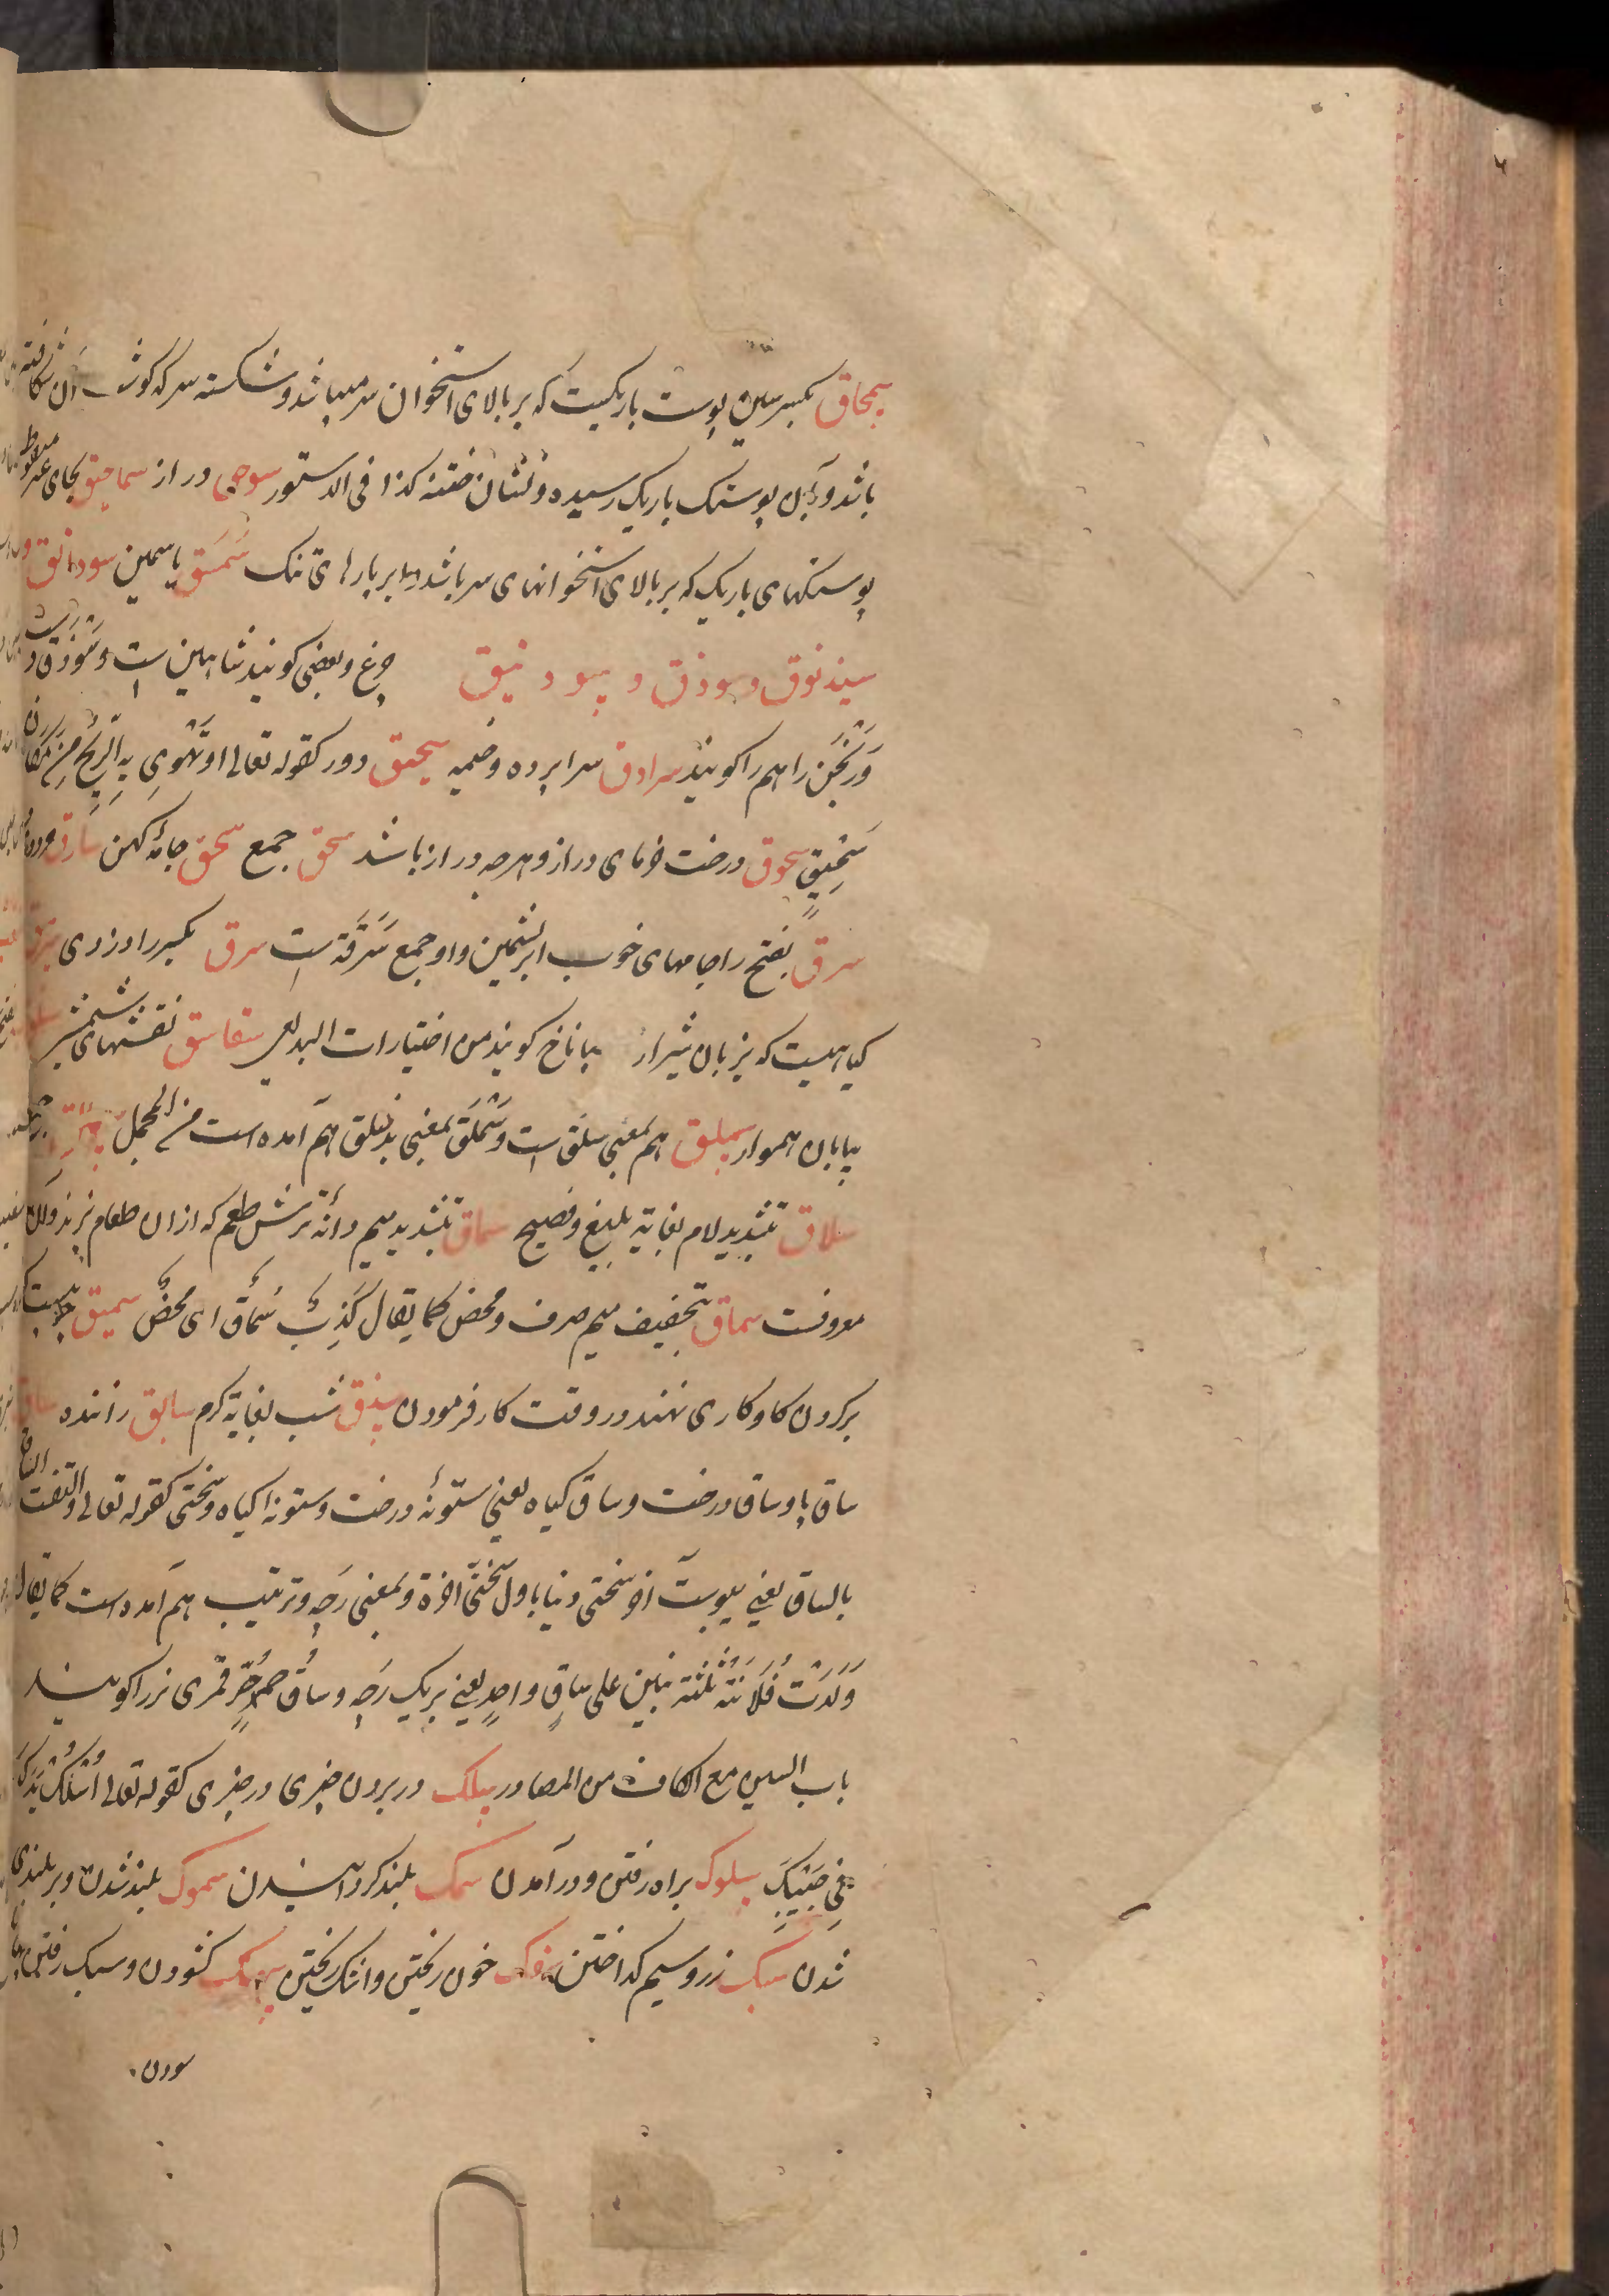 سمحاق بکسر سین پوست باریکیست که بر بالای استخوان سر میباشد و شکسته سر که گوشت آن شکافته
باشد و بآن پوستک باریک رسیده و نشان ختنه کذا فی الدستور سوحق دراز سماحیق بجای
پوستکهای باریک که بر بالای استخوانهای سر باشد و ابر پارهای تنک سمسق یاسمین سودانق
سیذنوق و سوذق و سوذنیق چرغ و بعضی کویند شاهین است و سوذق
ورنجن را هم را کویند سرادق سراپرده و خیمه سحیق دور کقوله تعالی او تَهْوِی بِهِ الرّیحُ فِی مَکَانٍ
سَحِیقٍ سحوق درخت خرمای دراز و هرچه دراز باشد سحق جمع سحق جامهٔ کهن سارق
سرق بفتح را جامهای خوب ابریشمین و او جمع سَرَقَة است سرق بکسر را دزدی
کیاهیست که بزبان شیراز بانانخ کویند من اختیارات البدیعی سفاسق نقشهای شمشیر
بیابان هموار سملق هم بمعنی سلق است و سَمْلَق بمعنی بدخلق هم آمده است من المجمل
سلاق بتشدید لام بغایة بلیغ و فصیح سماق بتشدید میم دانهٔ ترش طعم که ازان طعام پزند و آن
معروفست سماق بتخفیف میم صرف و محض کما یقال کَذِبٌ سُمَاقٌ ای محضٌ سمیق چوبیست که
بر کردن کاو کاری نهند در وقت کار فرمودن شب بغایة کرم سابق راننده ساق
ساق پا و ساق درخت و ساق کیاه یعنی ستونهٔ درخت و ستونهٔ کیاه و سختی کقوله تعالی والتفت الساق
بالساق یعنی پیوست آخر سختی دنیا باول سختی آخرة و بمعنی رَجه و ترتیب هم آمده است کما یقال
وَلَدَتْ فُلَانَةُ ثَلٰثَةَ بَنِینَ علی ساقٍ واحدٍ یعنی بر یک رَجه و ساقُ حُرٍّ قمری نر را کویند
باب السین مع الکاف من المصادر سلک در بردن چیزی در چیزی کقوله تعالی اُسْلُکْ یَدَکَ
فِی جَیْبِکَ سلوک براه رفتن و در آمدن سمک بلند کردانیدن سموک بلند شدن و بر بلندی
شدن سبک زر و سیم کداختن سفک خون ریختن و اشک ریختن سهک کشودن و سبک رفتن
سودن